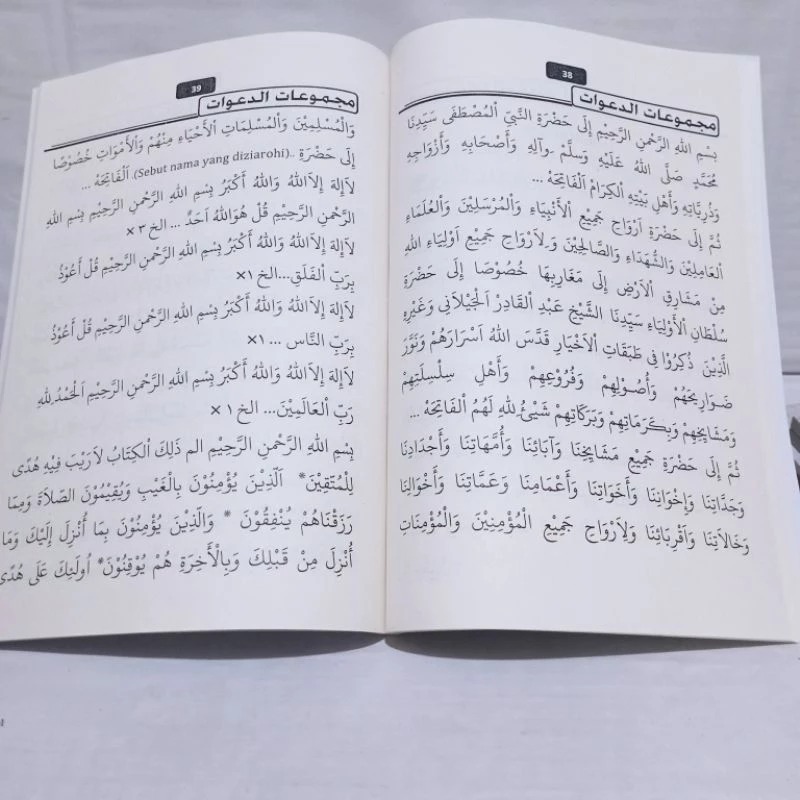 38
مجموعات الدعوات
بِسْمِ اللهِ الرَّحْمنِ الرَّحِيْمِ إِلَى حَضْرَةِ النَّبِيِّ الْمُصْطَفَى سَيِّدِنَا
مُحَمَّدٍ صَلَّى اللهُ عَلَيْهِ وَسَلَّمَ وَآلِهِ وَأَصْحَابِهِ وَأَزْوَاجِهِ
وَذُرِّيَاتِهِ وَأَهْلِ بَيْتِهِ الْكِرَامِ اَلْفَاتِحَةْ ...
ثُمَّ إِلَى حَضْرَةِ اَرْوَاحِ جَمِيْعِ الْأَنْبِيَاءِ وَالْمُرْسَلِيْنَ وَالْعُلَمَاءِ
الْعَامِلِيْنَ وَالشُّهَدَاءِ وَالصَّالِحِيْنَ وَلِاَرْوَاحِ جَمِيْعِ اَوْلِيَاءِ اللهِ
مِنْ مَشَارِقِ الْاَرْضِ إِلَى مَغَارِبِهَا خُصُوْصًا إِلَى حَضْرَةِ
سُلْطَانِ الْأَوْلِيَاءِ سَيِّدِنَا الشَّيْخِ عَبْدِ الْقَادِرِ الْجَيْلَانِي وَغَيْرِهِ
الَّذِيْنَ ذُكِرُوا فِي طَبَقَاتِ الْاَخْيَارِ قَدَّسَ اللهُ اَسْرَارَهُمْ وَنَوَّرَ
ضَوَارِيْحَهُمْ وَأُصُوْلِهِمْ وَفُرُوْعِهِمْ وَأَهْلِ سِلْسِلَتِهِمْ
وَمَشَايِخِهِمْ وَبِكَرَمَاتِهِمْ وَبَرَكَاتِهِمْ شَيْئٌ لِلهِ لَهُمُ الْفَاتِحَةْ ...
ثُمَّ إِلَى حَضْرَةِ جَمِيْعِ مَشَايِخِنَا وَآبَائِنَا وَأُمَّهَاتِنَا وَأَجْدَادِنَا
وَجَدَّاتِنَا وَإِخْوَانِنَا وَأَخَوَاتِنَا وَأَعْمَامِنَا وَعَمَّاتِنَا وَأَخْوَالِنَا
وَخَالَاتِنَا وَأَقْرِبَائِنَا وَلِاَرْوَاحِ جَمِيْعِ الْمُؤْمِنِيْنَ وَالْمُؤْمِنَاتِ
39
مجموعات الدعوات
وَالْمُسْلِمِيْنَ وَالْمُسْلِمَاتِ الْأَحْيَاءِ مِنْهُمْ وَالْأَمْوَاتِ خُصُوْصًا
إِلَى حَضْرَةِ ..(Sebut nama yang diziarohi). اَلْفَاتِحَةْ ...
لَاإِلهَ إِلَّااللهُ وَاللهُ أَكْبَرُ بِسْمِ اللهِ الرَّحْمنِ الرَّحِيْمِ بِسْمِ اللهِ
الرَّحْمنِ الرَّحِيْمِ قُلْ هُوَاللهُ اَحَدٌ ... الخ ٣ ×
لَاإِلهَ إِلَّااللهُ وَاللهُ أَكْبَرُ بِسْمِ اللهِ الرَّحْمنِ الرَّحِيْمِ قُلْ أَعُوْذُ
بِرَبِّ الْفَلَقِ...الخ ١×
لَاإِلهَ إِلَّااللهُ وَاللهُ أَكْبَرُ بِسْمِ اللهِ الرَّحْمنِ الرَّحِيْمِ قُلْ أَعُوْذُ
بِرَبِّ النَّاسِ ... ١×
لَاإِلهَ إِلَّااللهُ وَاللهُ أَكْبَرُ بِسْمِ اللهِ الرَّحْمنِ الرَّحِيْمِ اَلْحَمْدُ لِلهِ
رَبِّ الْعَالَمِيْنَ... الخ ١ ×
بِسْمِ اللهِ الرَّحْمنِ الرَّحِيْمِ الم ذلِكَ الْكِتَابُ لَارَيْبَ فِيْهِ هُدًى
لِلْمُتَّقِيْنَ* اَلَّذِيْنَ يُؤْمِنُوْنَ بِالْغَيْبِ وَيُقِيْمُوْنَ الصَّلَاةَ وَمِمَّا
رَزَقْنَاهُمْ يُنْفِقُوْنَ * وَالَّذِيْنَ يُؤْمِنُوْنَ بِمَا أُنْزِلَ إِلَيْكَ وَمَا
أُنْزِلَ مِنْ قَبْلِكَ وَبِالْأَخِرَةِ هُمْ يُوْقِنُوْنَ* اُولَئِكَ عَلَى هُدًى